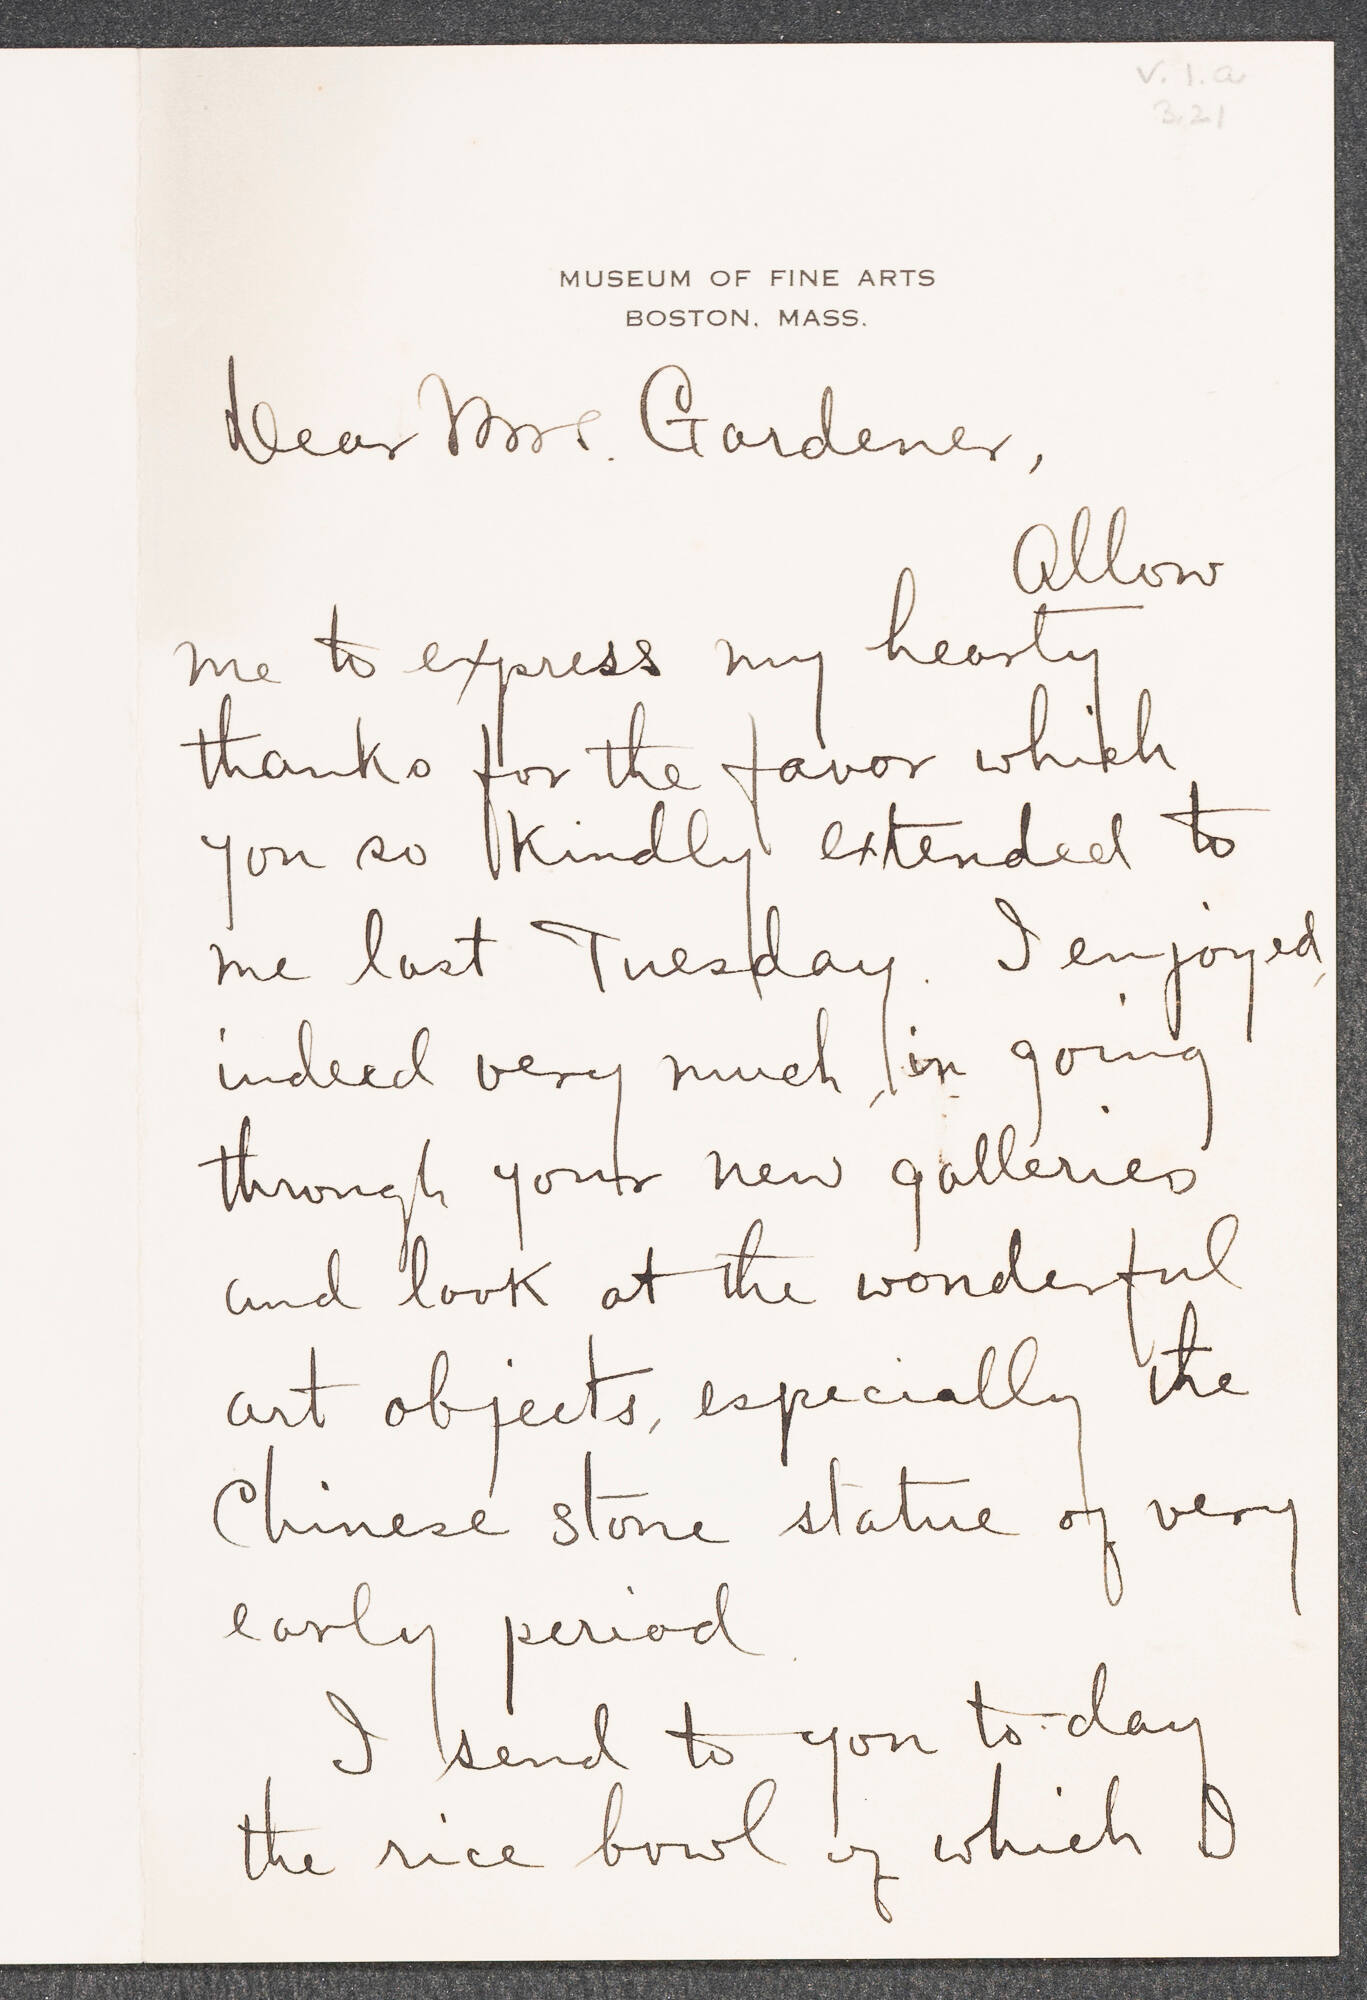 V. 1. a
3.21
MUSEUM OF FINE ARTS
BOSTON, MASS.
Dear Mrs. Gardener,
Allow
me to express my hearty
thanks for the favor which
you so kindly extended to
me last Tuesday. I enjoyed,
indeed very much, in going
through your new galleries
and look at the wonderful
art objects, especially the
Chinese stone statue of very
early period.
I send to you to-day
the rice bowl of which I